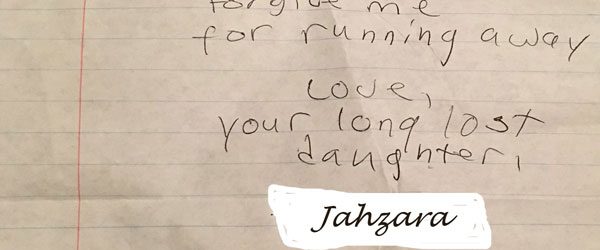 forgive me
for running away
Love,
your long lost
daughter,
Jahzara